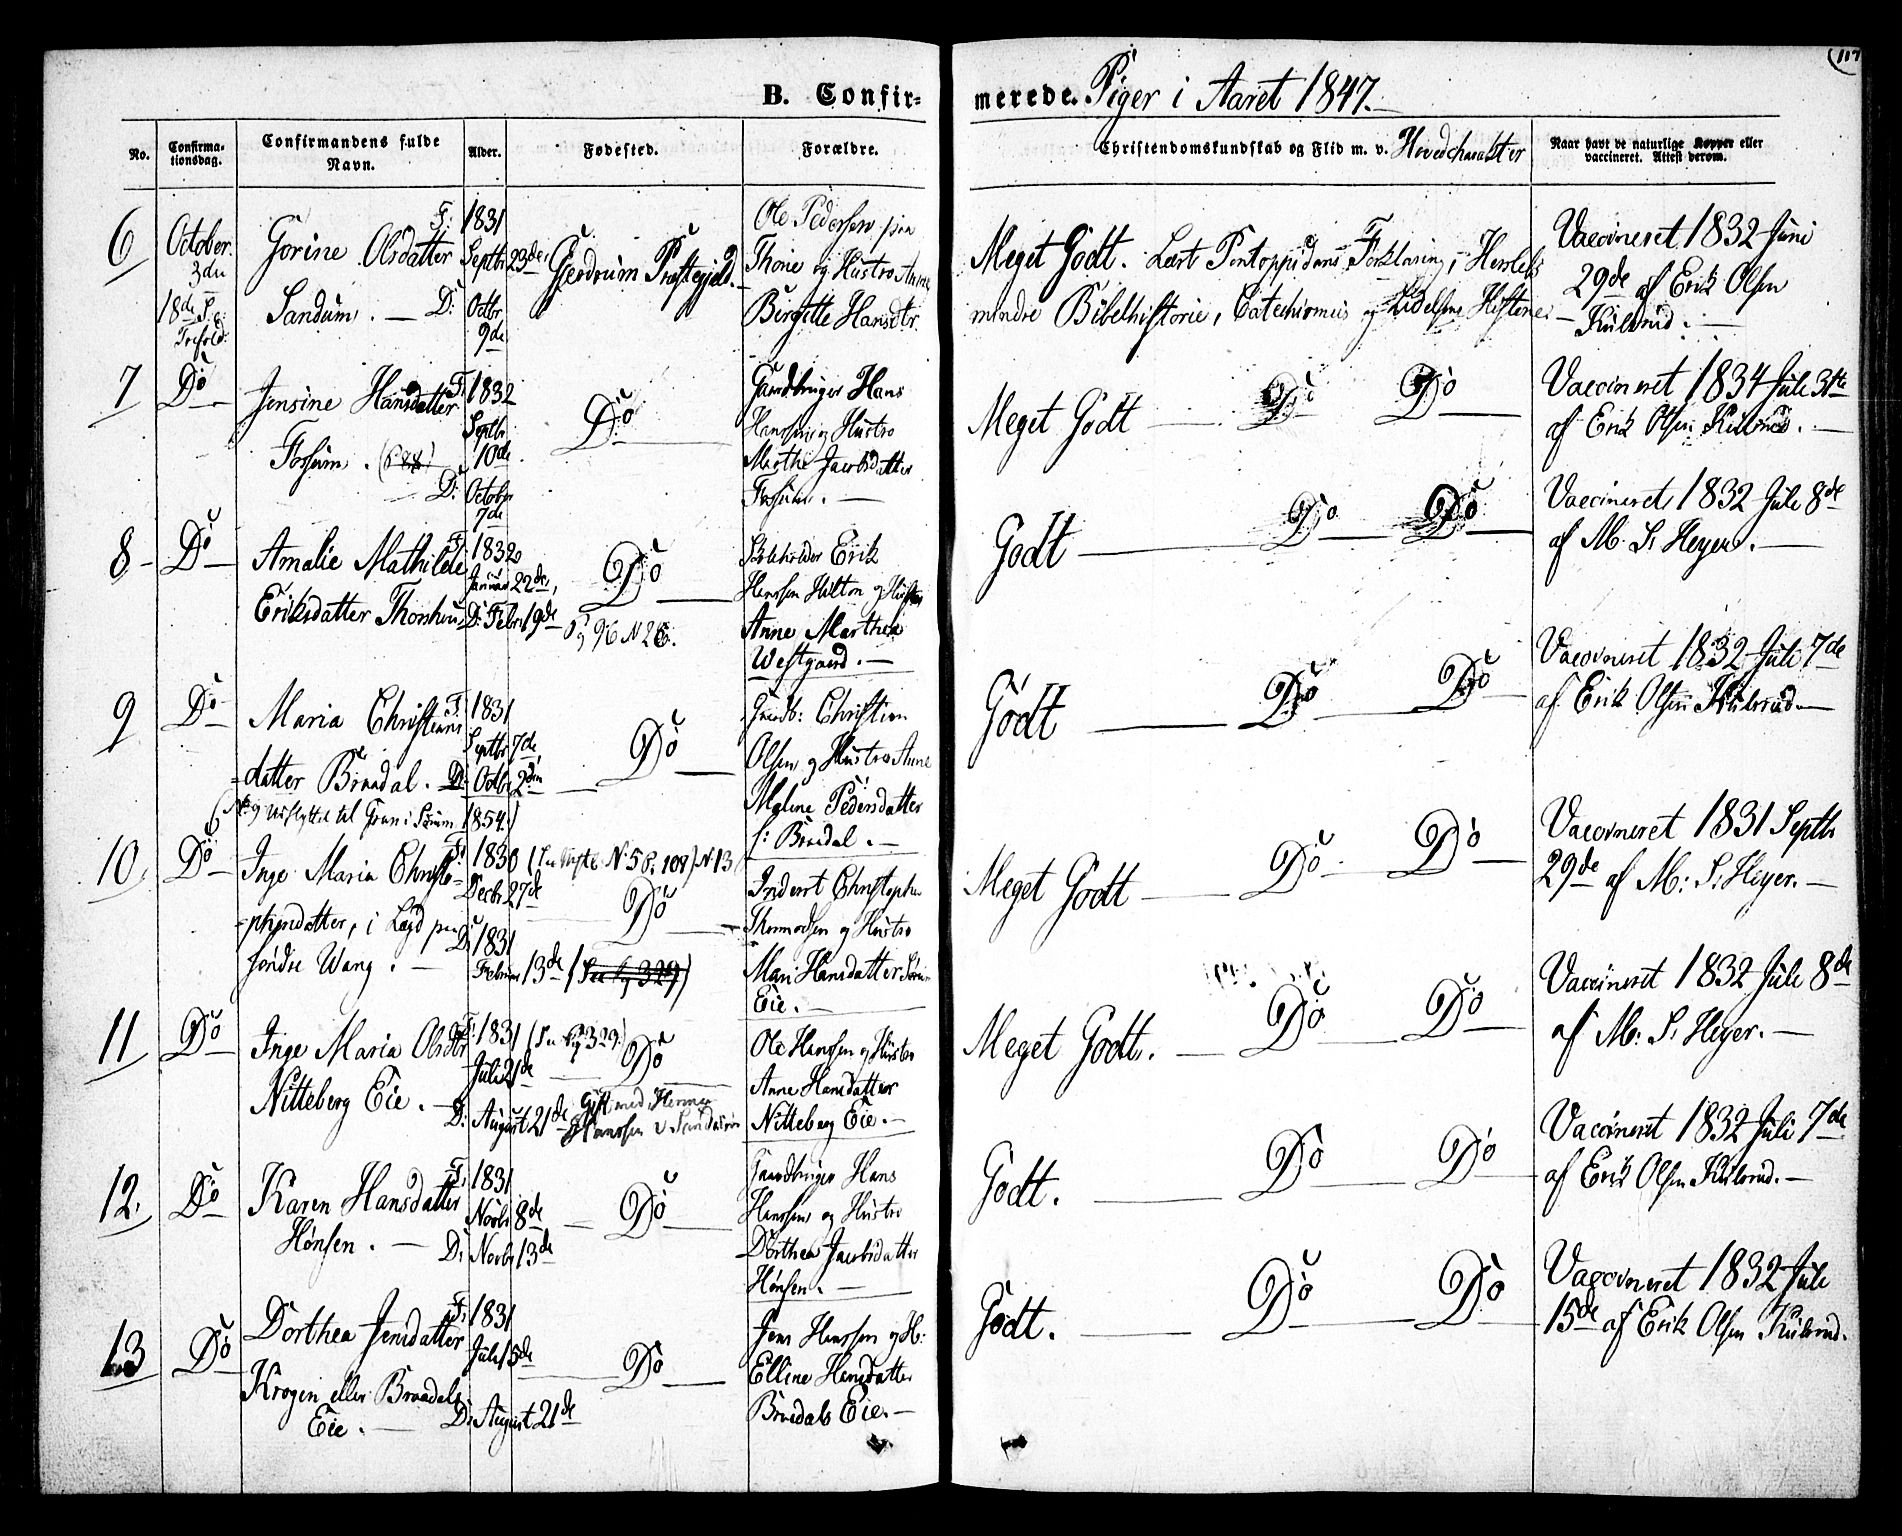 B. Confir=
merede. Piger i Aaret 1847.
No.
Confirma-
tionsdag.
Confirmandens fulde
Navn.
Alder.
Fødested.
Forældre.
Christendomskundskab og Flid m. v. Hovedcharakter
Naar havt de naturlige Kopper eller
vaccineret. Attest derom.
6
October
18de S. e.
Trefold:
Gorine Olsdatter
Sandum. —
F: 1831
Septbr 23de
D: Octbr
9de
Gjerdrum Præstegjeld.
Ole Pedersen
Thone og Hustro Anne
Birgitte Hansdtr
Meget Godt. Læst Pontoppidans Forklaring, Herslebs
mindre Bibelhistorie, Catechismus og Lidelsens Historie.
Vaccineret 1832 Juni
29de af Erik Olsen
Kulsrud. —
7
Do
Jensine Hansdatter
Fossum.
F: 1832
Septbr
10de
D: October
7de
Do
Gaardbruger Hans
Hanssen og Hustro
Marthe Jacobsdatter
Fossum. —
Meget Godt — Do Do —
Vaccineret 1834 Juli 3die
af Erik Olsen Kulsrud. —
8
Do
Amalie Mathilde
Eriksdatter Thorshaug
F: 1832
Januar 22de,
D: Febr 19de
Do
Pg 96 N 26.
Skoleholder Erik
Hanssen Hilton og Hustro
Anne Marthea
Westgaard. —
Godt — Do — Do —
Vaccineret 1832 Juli 8de
af M. S. Heyer. —
9
Do
Maria Christians
=datter Braadal. —
(No 9 udflyttet til Gran i Sørum 1854.)
F: 1831
Septbr 7de
D: Octbr 2den
Do
Gaardb: Christian
Olsen og Hustro Anne
Malene Pedersdatter
f: Braadal. —
Godt — Do — Do —
Vaccineret 1832 Juli 7de
af Erik Olsen Kulsrud. —
10.
Do
Inge Maria Christo=
=phersdatter, i Lægd paa
søndre Wang. —
F: 1830
Decbr 27de
D: 1831
Februar 13de
Do
Inderst Christopher
Thormodsen og Hustro
Mari Hansdatter
Eie. —
Meget Godt — Do — Do —
Vaccineret 1831 Septbr
29de af M: S: Heyer. —
11
Do
Inge Maria Olsdtr
Nitteberg Eie. —
F: 1831 (See Pg 329)
Juli 21de
D: August 21de
Do
Gift med Herman
Hanssen
Ole Hanssen og Hustro
Anne Hansdatter
Nitteberg Eie. —
Meget Godt. — Do — Do —
Vaccineret 1832 Juli 8de
af M: S. Heyer. —
12.
Do
Karen Hansdatter
Hønsen. —
F: 1831
Novbr 8de
D: Novbr 13de
Do
Gaardbruger Hans
Hanssen og Hustro
Dorthea Jacobsdatter
Hønsen. —
Godt. — Do — Do —
Vaccineret 1832 Juli 7de
af Erik Olsen Kulsrud. —
13
Do
Dorthea Jensdatter
Krogen eller Braadals
Eie. —
F: 1831
Juli 15de
D: August 21de
Do
Jens Hanssen og H:
Elline Hansdatter
Braadals Eie. —
Godt. — Do — Do —
Vaccineret 1832 Juli
15de af Erik Olsen Kulsrud.